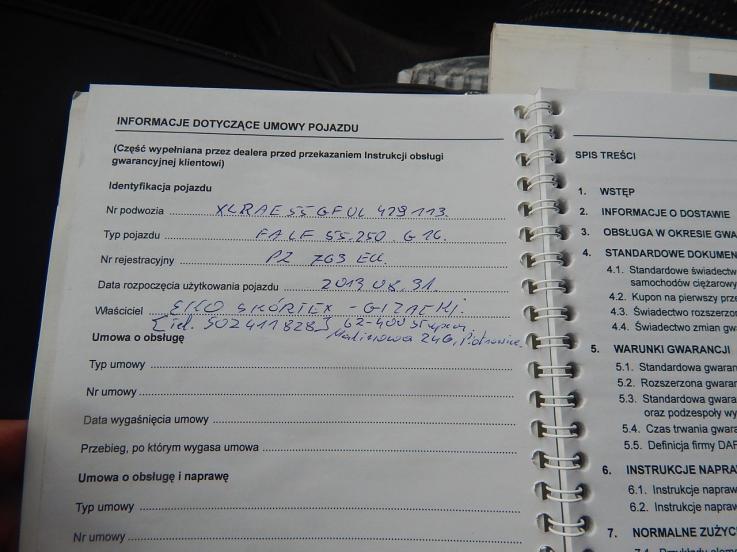 INFORMACJE DOTYCZĄCE UMOWY POJAZDU
(Część wypełniana przez dealera przed przekazaniem Instrukcji obsługi
gwarancyjnej klientowi)
Identyfikacja pojazdu
Nr podwozia XLRAE55GF0L 429113
Typ pojazdu FALF 55.250 G16
Nr rejestracyjny PZ 763 EU
Data rozpoczęcia użytkowania pojazdu 2013.08.31.
Właściciel EKO SKÓRTEX - GIZAŁKI.
[tel. 502411828] 62-400 Słupca
Malinowa 24G, Piotrowice
Umowa o obsługę
Typ umowy
Nr umowy
Data wygaśnięcia umowy
Przebieg, po którym wygasa umowa
Umowa o obsługę i naprawę
Typ umowy
Nr umowy
SPIS TREŚCI
1. WSTĘP
2. INFORMACJE O DOSTAWIE
3. OBSŁUGA W OKRESIE GWA
4. STANDARDOWE DOKUMEN
4.1. Standardowe świadectw
samochodów ciężarowy
4.2. Kupon na pierwszy prze
4.3. Świadectwo rozszerzon
4.4. Świadectwo zmian gw
5. WARUNKI GWARANCJI
5.1. Standardowa gwaran
5.2. Rozszerzona gwaran
5.3. Standardowa gwara
oraz podzespoły wy
5.4. Czas trwania gwara
5.5. Definicja firmy DAF
6. INSTRUKCJE NAPRA
6.1. Instrukcje napraw
6.2. Instrukcje napraw
7. NORMALNE ZUŻYC